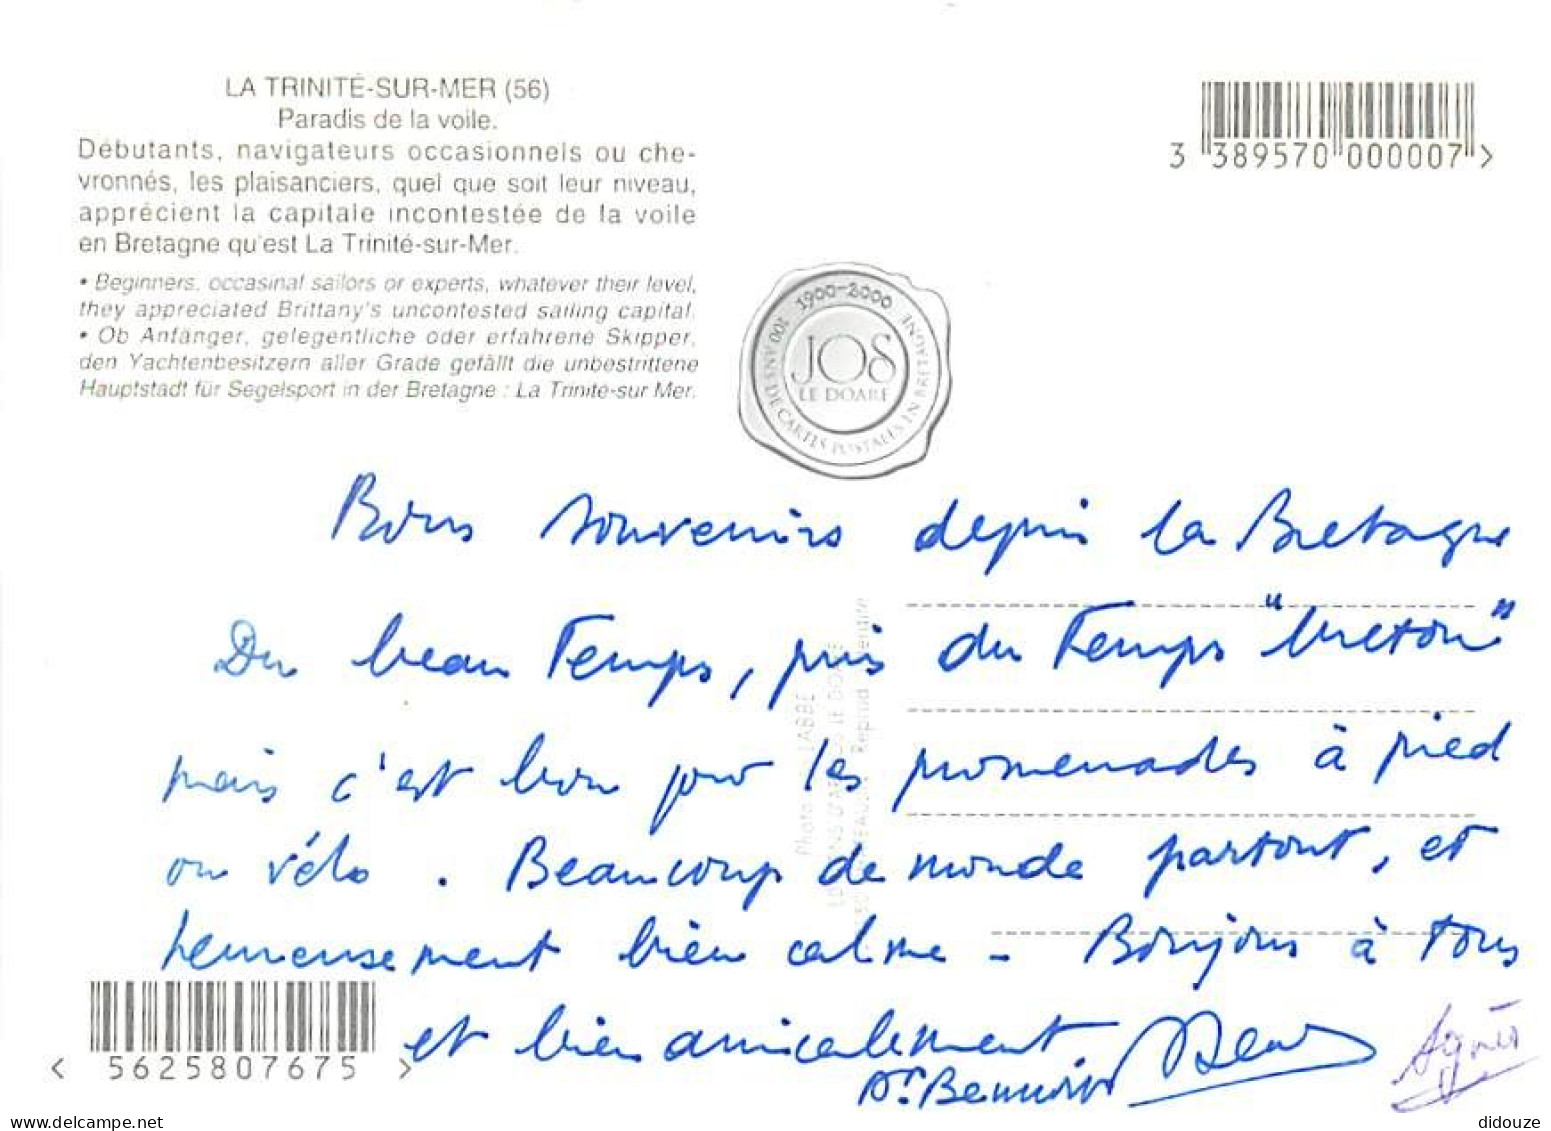 LA TRINITÉ-SUR-MER (56)
Paradis de la voile.
Débutants, navigateurs occasionnels ou che-
vronnés, les plaisanciers, quel que soit leur niveau,
apprécient la capitale incontestée de la voile
en Bretagne qu'est La Trinité-sur-Mer.
• Beginners, occasinal sailors or experts, whatever their level,
they appreciated Brittany's uncontested sailing capital.
• Ob Anfänger, gelegentliche oder erfahrene Skipper,
den Yachtenbesitzern aller Grade gefällt die unbestrittene
Hauptstadt für Segelsport in der Bretagne : La Trinite-sur Mer.
3 389570 000007 >
1900-2000
100 ANS DE CARTES POSTALES EN BRETAGNE
JOS
LE DOARE
Bons souvenirs depuis la Bretagne
Du beau Temps, puis du Temps "breton"
mais c'est bon pour les promenades à pied
ou vélo. Beaucoup de monde partout, et
heureusement bien calme - Bonjour à tous
et bien amicalement.
Photo LABBE
< 5625807675 >
Agnès
delcampe.net
didouze